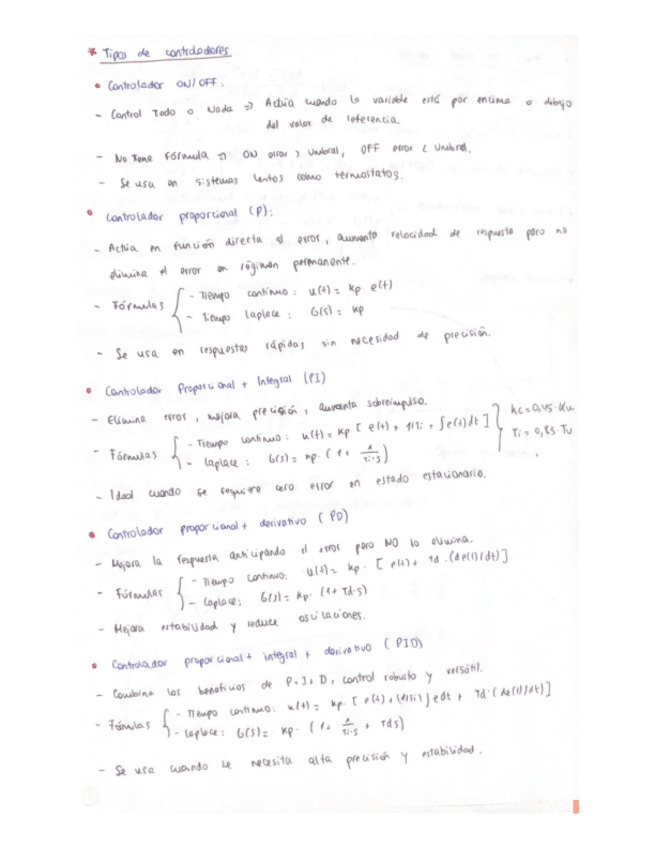 * Tipos de controladores
• Controlador ON/OFF:
- Control Todo o Nada => Actúa cuando la variable está por encima o debajo
del valor de referencia.
- No tiene fórmula => ON error > Umbral, OFF error < Umbral.
- Se usa en sistemas lentos como termostatos.
• Controlador proporcional (P):
- Actúa en función directa al error, aumenta velocidad de respuesta pero no
elimina el error en régimen permanente.
- Fórmulas { - Tiempo continuo: u(t) = Kp e(t)
- Tiempo Laplace: G(s) = Kp
- Se usa en respuestas rápidas sin necesidad de precisión.
• Controlador Proporcional + Integral (PI)
- Elimina error, mejora precisión, aumenta sobreimpulso.
- Fórmulas { - Tiempo continuo: u(t) = Kp [ e(t) + 1/Ti + ∫e(t)dt ] } Kc = 0,45·Ku
- Laplace: G(s) = Kp · (1 + 1/Ti·s) Ti = 0,83·Tu
- Ideal cuando se requiere cero error en estado estacionario.
• Controlador proporcional + derivativo (PD)
- Mejora la respuesta anticipando el error pero NO lo elimina.
- Fórmulas { - Tiempo continuo: u(t) = Kp · [ e(t) + Td · (de(t)/dt) ]
- Laplace: G(s) = Kp · (1 + Td·s)
- Mejora estabilidad y reduce oscilaciones.
• Controlador proporcional + integral + derivativo (PID)
- Combina los beneficios de P+I+D, control robusto y versátil.
- Fórmulas { - Tiempo continuo: u(t) = Kp · [ e(t) + (1/Ti) ∫edt + Td · (de(t)/dt) ]
- Laplace: G(s) = Kp · (1 + 1/Ti·s + Tds)
- Se usa cuando se necesita alta precisión y estabilidad.